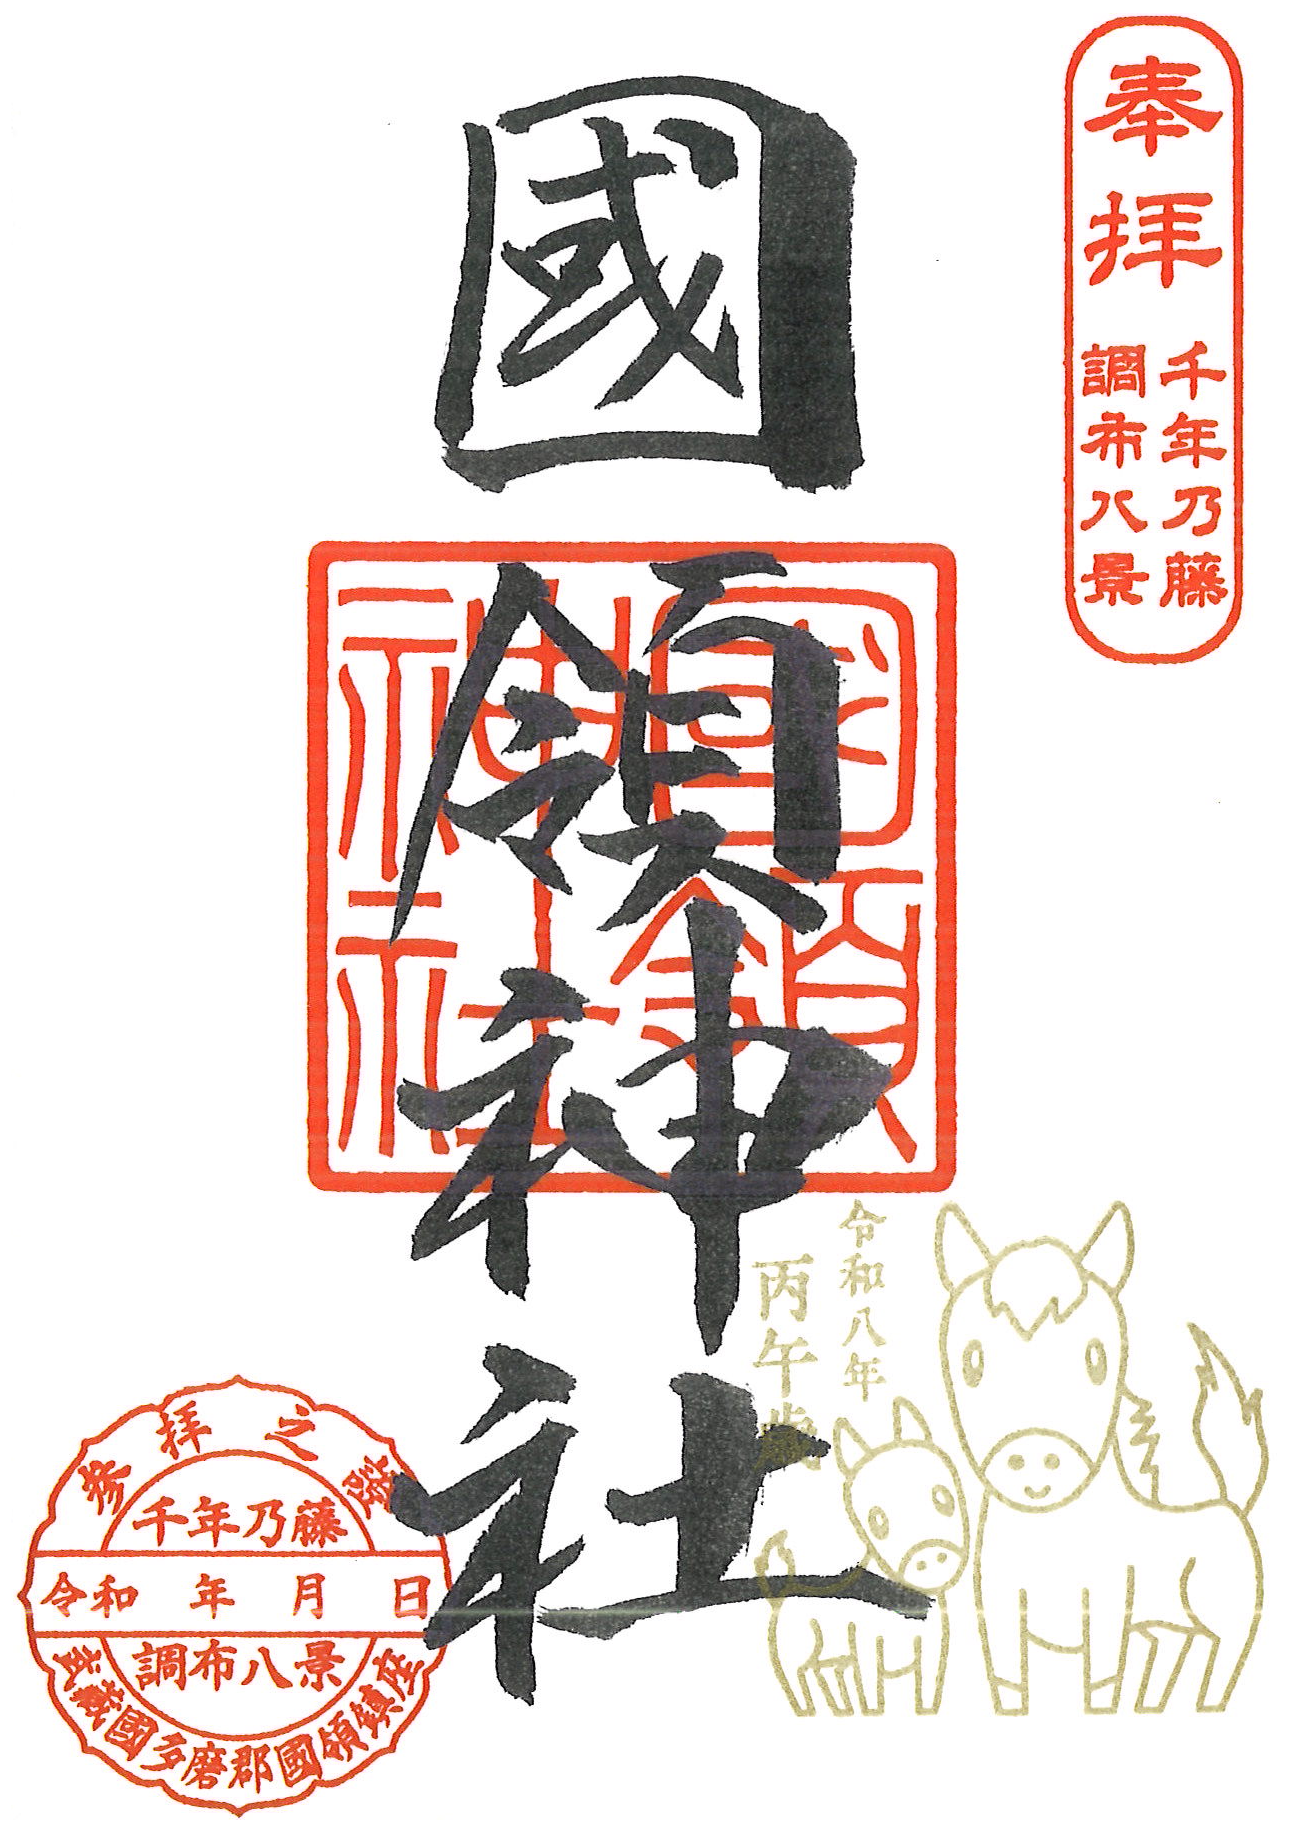 奉拝
千年乃藤
調布八景
國領神社
國領
神社
令和八年
丙午歳
參拝之證
千年乃藤
令和 年 月 日
調布八景
武蔵國多磨郡國領鎮座